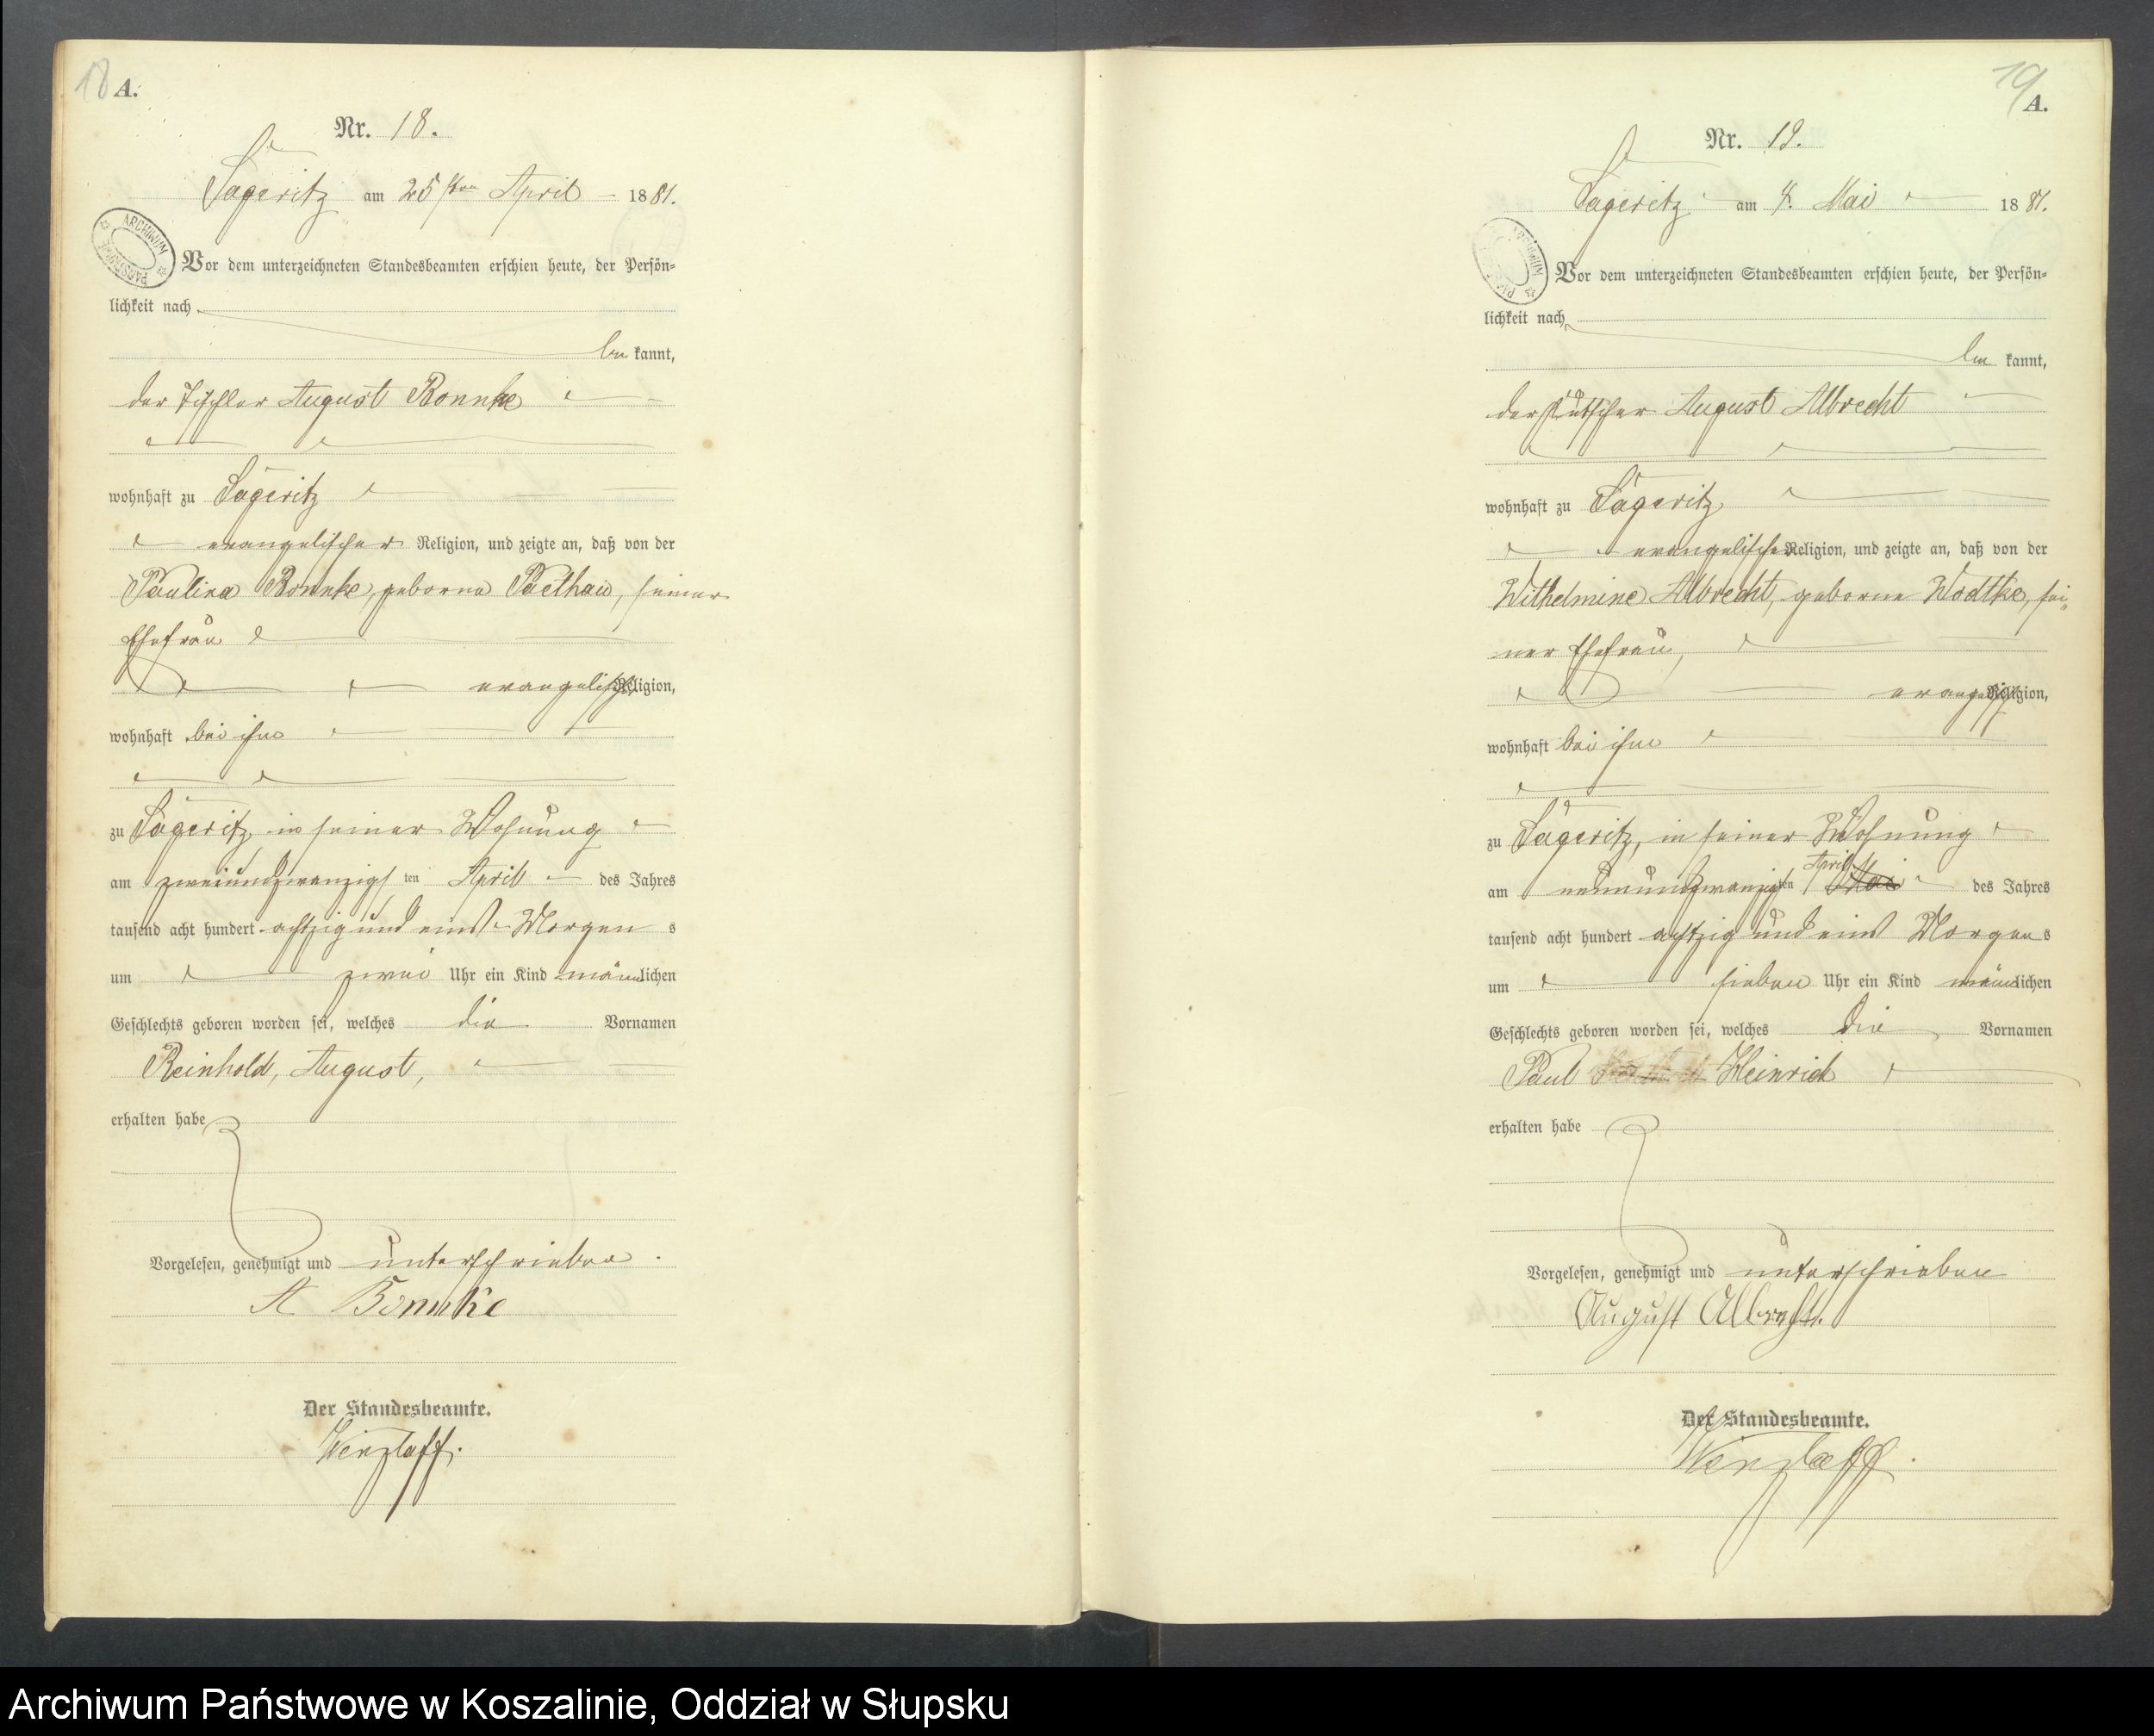 18 A.
Nr. 18.
Sageritz am 25sten April 1881.
Vor dem unterzeichneten Standesbeamten erschien heute, der Persön-
lichkeit nach
be kannt,
der Tischler August Bonnke
wohnhaft zu Sageritz
evangelischer Religion, und zeigte an, daß von der
Pauline Bonnke, geborne Paethau, seiner
Ehefrau
evangelischer Religion,
wohnhaft bei ihm
zu Sageritz, in seiner Wohnung
am zweiundzwanzigsten April des Jahres
tausend acht hundert achtzig und eins Morgens
um zwei Uhr ein Kind männlichen
Geschlechts geboren worden sei, welches die Vornamen
Reinhold, August,
erhalten habe
Vorgelesen, genehmigt und unterschrieben
A Bonnke
Der Standesbeamte.
Wenzlaff.
19
A.
Nr. 19.
Sageritz am 4. Mai 1881.
Vor dem unterzeichneten Standesbeamten erschien heute, der Persön-
lichkeit nach
be kannt,
der Kutscher August Albrecht
wohnhaft zu Sageritz
evangelischer Religion, und zeigte an, daß von der
Wilhelmine Albrecht, geborne Wodtke, sei-
ner Ehefrau,
evangelischer Religion,
wohnhaft bei ihm
zu Sageritz, in seiner Wohnung
am neunundzwanzigsten April Mai des Jahres
tausend acht hundert achtzig und eins Morgens
um sieben Uhr ein Kind männlichen
Geschlechts geboren worden sei, welches die Vornamen
Paul Heinrich
erhalten habe
Vorgelesen, genehmigt und unterschrieben
August Albrecht.
Der Standesbeamte.
Wenzlaff.
Archiwum Państwowe w Koszalinie, Oddział w Słupsku